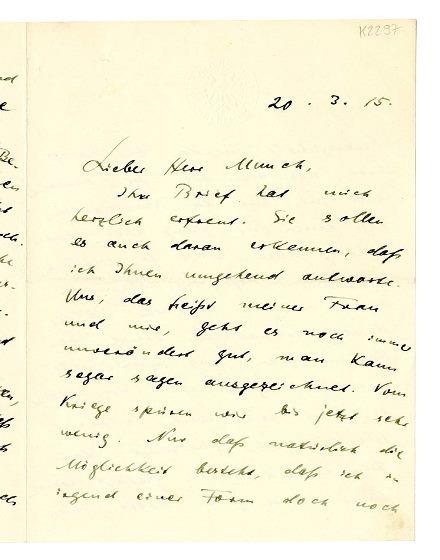 K2297
nd
e
Be-
en
st
ch.
he
er-
d
en,
ß
ß
ch
20. 3. 15.
Lieber Herr Munch,
Ihr Brief hat mich
herzlich erfreut. Sie sollen
es auch daran erkennen, daß
ich Ihnen umgehend antworte.
Uns, das heißt meiner Frau
und mir, geht es noch immer
unverändert gut, man kann
sogar sagen ausgezeichnet. Vom
Kriege spüren wir bis jetzt sehr
wenig. Nur daß natürlich die
Möglichkeit besteht, daß ich in
irgend einer Form doch noch